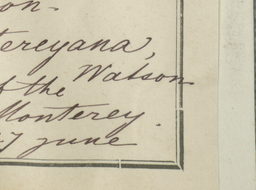 on-
tereyana,
Watson
f the
Monterey.
7 June